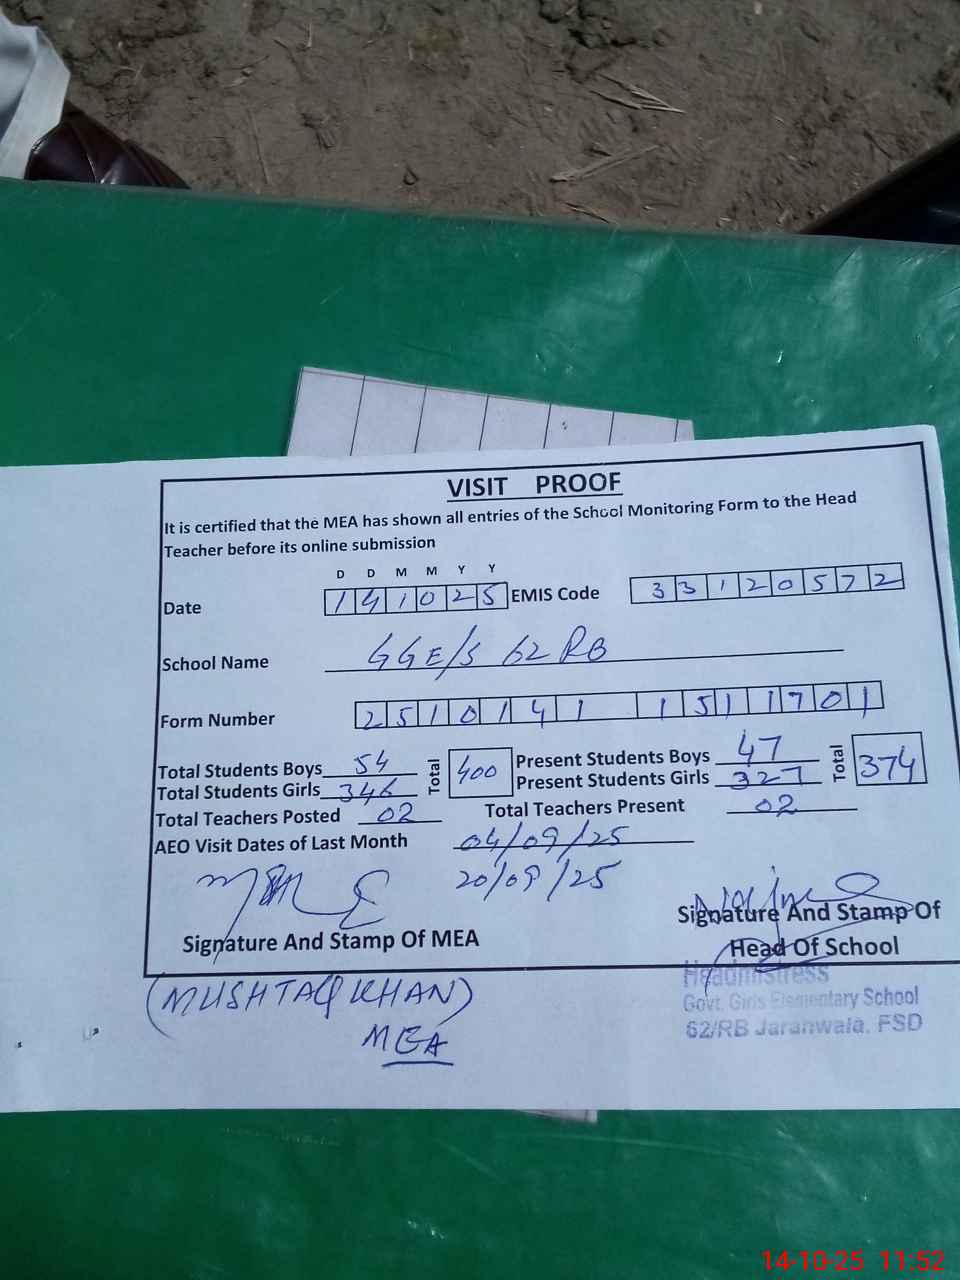 VISIT PROOF
It is certified that the MEA has shown all entries of the School Monitoring Form to the Head
Teacher before its online submission
D D M M Y Y
Date 141025 EMIS Code 33120572
School Name GGE/S 62 RB
Form Number 2510141 1511701
Total Students Boys 54 Total 400 Present Students Boys 47 Total 374
Total Students Girls 346 Present Students Girls 327
Total Teachers Posted 02 Total Teachers Present 02
AEO Visit Dates of Last Month 04/09/25
20/09/25
Signature And Stamp Of MEA
Signature And Stamp Of
Head Of School
(MUSHTAQ KHAN)
MEA
Headmistress
Govt. Girls Elementary School
62/RB Jaranwala, FSD
14-10-25 11:52